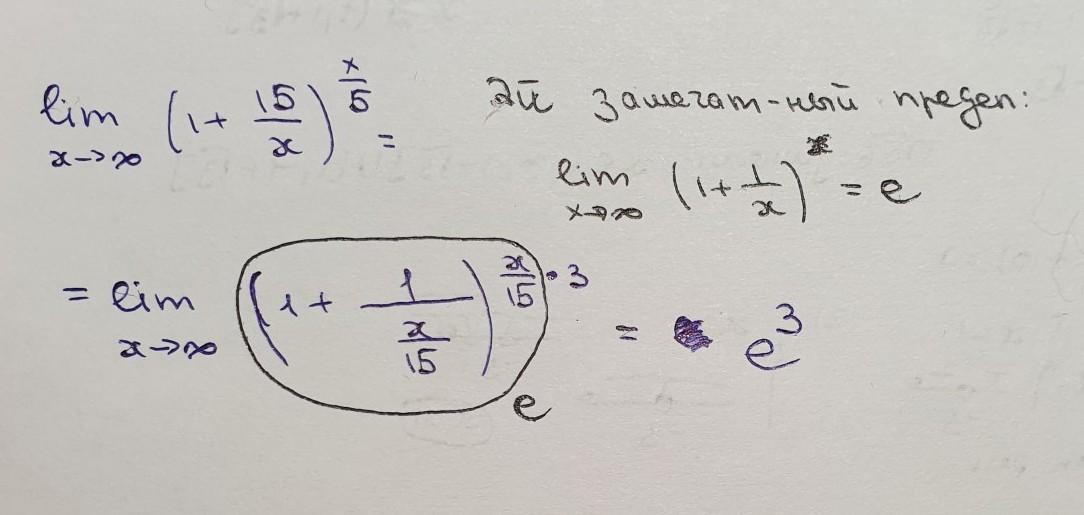 lim x→∞ (1 + 15/x)^(x/5) =
2й замечат-ный предел:
lim x→∞ (1 + 1/x)^x = e
= lim x→∞ (1 + 1/(x/15))^(x/15 · 3) = e^3
e